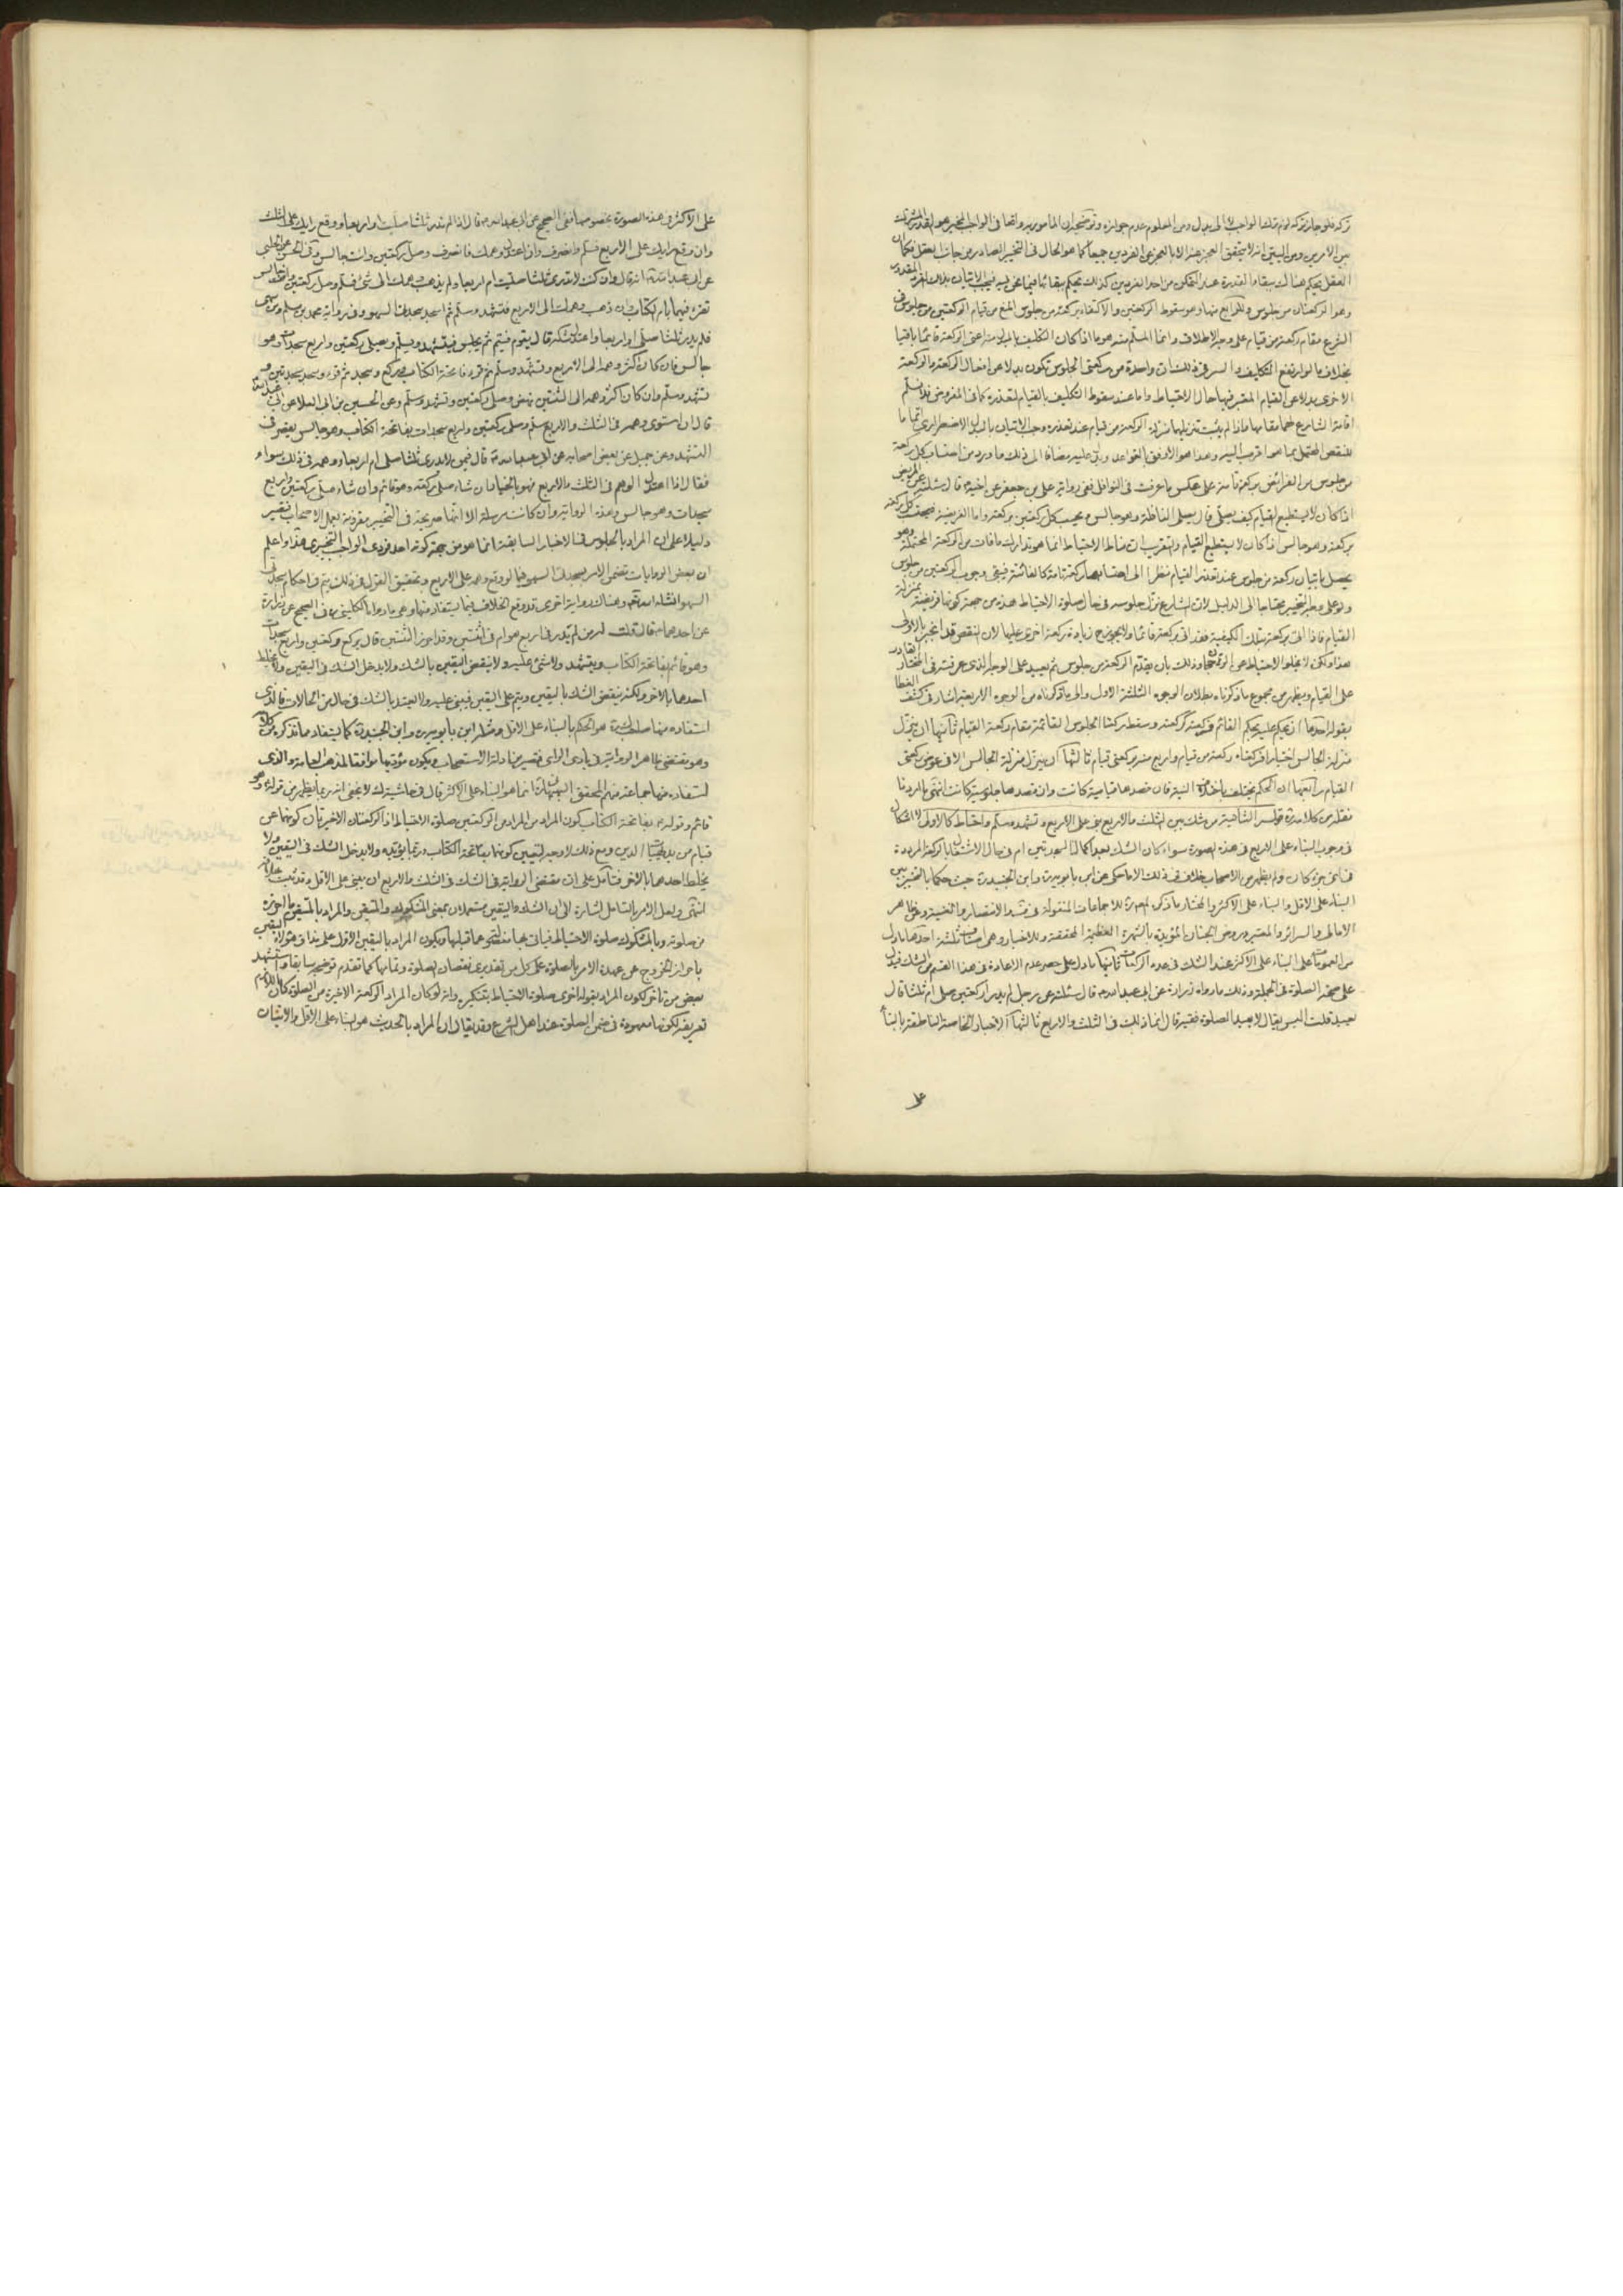 تركه فلو جاز تركه لزم ترك الواجب لا الى بدل ومن المعلوم عدم جوازه وتوضيحه ان المأمور به واقعا فى الواجب المخير هو القدر المشترك
بين الامرين ومن البيّن انه لا يتحقق العجز عنه الا بالعجز عن الفردين جميعا كما هو الحال فى التخيير الصادر من جانب العقل فكما ان
العقل يحكم هناك ببقاء القدرة عند التمكن من احد الفردين كذلك يحكم ببقائها فيما نحن فيه فيجب الاتيان بذلك الفرد المقدور
وهو الركعتان من جلوس
الشرع مقام ركعة من قيام على وجه الاطلاق وانما المسلّم منه هو ما اذا كان التكليف بالمبدل منه اعنى الركعة قائما باقيا
بخلاف ما لو ارتفع التكليف والسر فى ذلك ان واحدة من ركعتى الجلوس تكون بدلا عن افعال الركعة والركعة
الاخرى بدلا عن القيام المعتبر فيها حال الاحتياط واما عند سقوط التكليف بالقيام لتعذره كما فى المفروض فلا نسلّم
اقامة الشارع لهما مقامها فاذا لم يثبت تنزيلهما منزلة الركعة من قيام عند تعذره وجب الاتيان بالبدل الاضطرارى
للنقص المحتمل بما هو اقرب اليه وهذا هو الاوفق بالقواعد ويدل عليه مضافا الى ذلك ما ورد من احتساب كل ركعة
من جلوس من الفرائض بركعة تامة على عكس ما عرفت فى النوافل ففى رواية على بن جعفر عن اخيه قال سئلته عن المريض
اذا كان لا يستطيع القيام كيف يصلى قال يصلى النافلة وهو جالس ويحسب كل ركعتين بركعة واما الفريضة فيحتسب كل ركعة
بركعة وهو جالس اذا كان لا يستطيع القيام والتقريب ان مناط الاحتياط انما هو تدارك ما فات من الركعة المحتملة وهو
يحصل باتيان ركعة من جلوس عند تعذر القيام نظرا الى احتسابها ركعة تامة كالفائتة فيبقى وجوب الركعتين من جلوس
ولو على وجه التخيير محتاجا الى الدليل لان الشارع نزّل جلوسه فى حال صلوة الاحتياط هذه من جهة كونها فريضة بمنزلة
القيام فاذا اتى بركعة بتلك الكيفية فقد اتى بركعة قائما ولا يجوز ح زيادة ركعة اخرى عليها لان النقص قد انجبر بالاولى
هذا ولكن لا يخلو الاحتياط عن وذلك بان يقدّم الركعة من جلوس ثم يعيد على الوجه الذى عرفته فى المختار القادر
على القيام ويظهر من مجموع ما ذكرناه بطلان الوجوه الثلثة الاول والى ما ذكرناه من الوجوه الاربعة اشار فى كشف الغطا
بقوله احدها انه يحكم عليه بحكم القائم فركعته كركعته وسقط ركعتا الجلوس القائمة مقام ركعة القيام ثانيها ان ينزّل
منزلة الجالس اختيارا فركعتاه ركعة من قيام واربع منه بركعتى قيام ثالثها ان ينزّل منزلة الجالس لا فى عوض ركعتى
القيام رابعها ان الحكم يختلف باختلاف النية فان قصدها قيامية كانت وان قصدها جلوسية كانت انتهى ما اردنا
نقله من كلامه قوله الثانية من شك بين الثلث والاربع بنى على الاربع وتشهد وسلّم واحتاط كالاولى لا اشكال
فى وجوب البناء على الاربع فى هذه الصورة سواء كان الشك بعد اكمال السجدتين ام فى حال الاشتغال بالركعة المرددة
فى اى جزء كان ولم يظهر من الاصحاب خلاف فى ذلك الا ما حكى عن ابن بابويه وابن الجنيد حيث حكما بالتخيير بين
البناء على الاقل والبناء على الاكثر والمختار ما ذكره المص للاجماعات المنقولة فى الانتصار والغنية وظاهر
الامالى والسرائر والمعتبر وروض الجنان المؤيدة بالشهرة العظيمة المحققة وللاخبار وهى اصناف ثلثة احدها ما دل
من العمومات على البناء على الاكثر عند الشك فى عدد الركعات ثانيها ما دل على حصر عدم الاعادة فى هذا القسم من الشك فيدل
على صحة الصلوة فى الجملة وذلك ما رواه زرارة عن ابى عبد الله قال سئلته عن رجل لم يدر أركعتين صلى ام ثلثا قال
يعيد قلت اليس يقال لا يعيد الصلوة فقيه قال انما ذلك فى الثلث والاربع ثالثها الاخبار الخاصة الناطقة بالبناء
على
على الاكثر فى هذه الصورة بخصوصها ففى الصحيح عن ابى عبد الله قال اذا لم تدر ثلثا صليت او اربعا ووقع رأيك على الثلث
وان وقع رأيك على الاربع فسلّم وانصرف وان اعتدل وهمك فانصرف وصلّ ركعتين وانت جالس وفى الحسن عن الحلبى
عن ابى عبد الله انه قال وان كنت لا تدرى ثلثا صليت ام اربعا ولم يذهب وهمك الى شئ فسلّم وصل ركعتين وانت جالس
تقرء فيهما بام الكتاب وان ذهب وهمك الى الاربع فتشهد وسلّم ثم اسجد سجدتى السهو وفى رواية محمد بن مسلم ومن سهى
فلم يدر ثلثا صلى او اربعا واعتدل شكه قال يقوم فيتم ثم يجلس فيتشهد ويسلّم ويصلى ركعتين واربع سجدات وهو
جالس فان كان اكثر وهمه الى الاربع تشهد وسلّم ثم قرء فاتحة الكتاب وركع وسجد ثم قرء وسجد سجدتين
وتشهد وسلّم وان كان اكثر وهمه الى الثنتين نهض وصلى ركعتين وتشهد وسلّم وعن الحسين بن ابى العلا عن ابى عبد الله
قال ان استوى وهمه فى الثلث والاربع سلّم وصلى ركعتين واربع سجدات بفاتحة الكتاب وهو جالس يقصر فى
التشهد وعن جميل عن بعض اصحابه عن ابى عبد الله قال فيمن لا يدرى ثلثا صلى ام اربعا ووهمه فى ذلك سواء
فقال اذا اعتدل الوهم فى الثلث والاربع فهو بالخيار ان شاء صلى ركعة وهو قائم وان شاء صلى ركعتين واربع
سجدات وهو جالس وهذه الرواية وان كانت مرسلة الا انها صريحة فى التخيير مقرونة بعمل الاصحاب فتصير
دليلا على ان المراد بالجلوس فى الاخبار السابقة انما هو من جهة كونه احد فردى الواجب التخييرى هذا واعلم
ان بعض الروايات تضمن الامر بسجدتى السهو فيما لو وقع وهمه على الاربع وتحقيق القول فى ذلك يتم فى احكام سجدتى
السهو انشاء الله تعالى وهناك رواية اخرى قد وقع الخلاف فيما يستفاد منها وهى ما رواه الكلينى فى الصحيح عن زرارة
عن احدهما قال قلت له من لم يدر فى اربع هو ام فى ثنتين وقد احرز الثنتين قال يركع ركعتين واربع سجدات
وهو قائم بفاتحة الكتاب ويتشهد ولا شئ عليه ولا ينقض اليقين بالشك ولا يدخل الشك فى اليقين ولا يخلط
احدهما بالاخر ولكنه ينقض الشك باليقين ويتم على اليقين فيبنى عليه ولا يعتد بالشك فى حال من الحالات فالذى
استفاده منها صاحب هو الحكم بالبناء على الاقل ومثله ابن بابويه وابن الجنيد كما يستفاد مما نذكر من كلامه
وهو مقتضى ظاهر الرواية فى بادى الراى فتصير من ادلة الاستصحاب ويكون مؤديها موافقا لمذهب العامة والذى
استفاده منها جماعة منهم المحقق البهبهانى انما هو البناء على الاكثر قال فى حاشية لا يخفى انه ربما يظهر من قوله وهو
قائم وقوله بفاتحة الكتاب كون المراد من الركعتين صلوة الاحتياط اذ الركعتان الاخيرتان كونهما عن
قيام من بديهيات الدين ومع ذلك لا وجه لتعيين كونهما بفاتحة الكتاب وربما يؤيده ولا يدخل الشك فى اليقين ولا
يخلط احدهما بالاخر فتأمل على ان مقتضى الرواية فى الشك فى الثلث والاربع ان يبنى على الاقل وقد ثبت خلافه
انتهى ولعل الامر بالتأمل اشارة الى ان الشك واليقين مستعملان بمعنى المشكوك والمتيقن والمراد بالمتيقن ما احرزه
من صلوته وبالمشكوك صلوة الاحتياط ويكون المراد باليقين الاول
باحراز الخروج عن عهدة الامر بالصلوة على كل من تقديرى نقصان الصلوة وتمامها كما تقدم توضيحه سابقا واستشهد
بعض من تأخر لكون المراد بقوله اخرى صلوة الاحتياط بتنكيره وانه لو كان المراد الركعة الاخيرة من الصلوة كان اللازم
تعريفه لكونها معهودة فى ضمن الصلوة عند اهل الشرع وقد يقال ان المراد بالحديث هو البناء على الاقل والاتيان